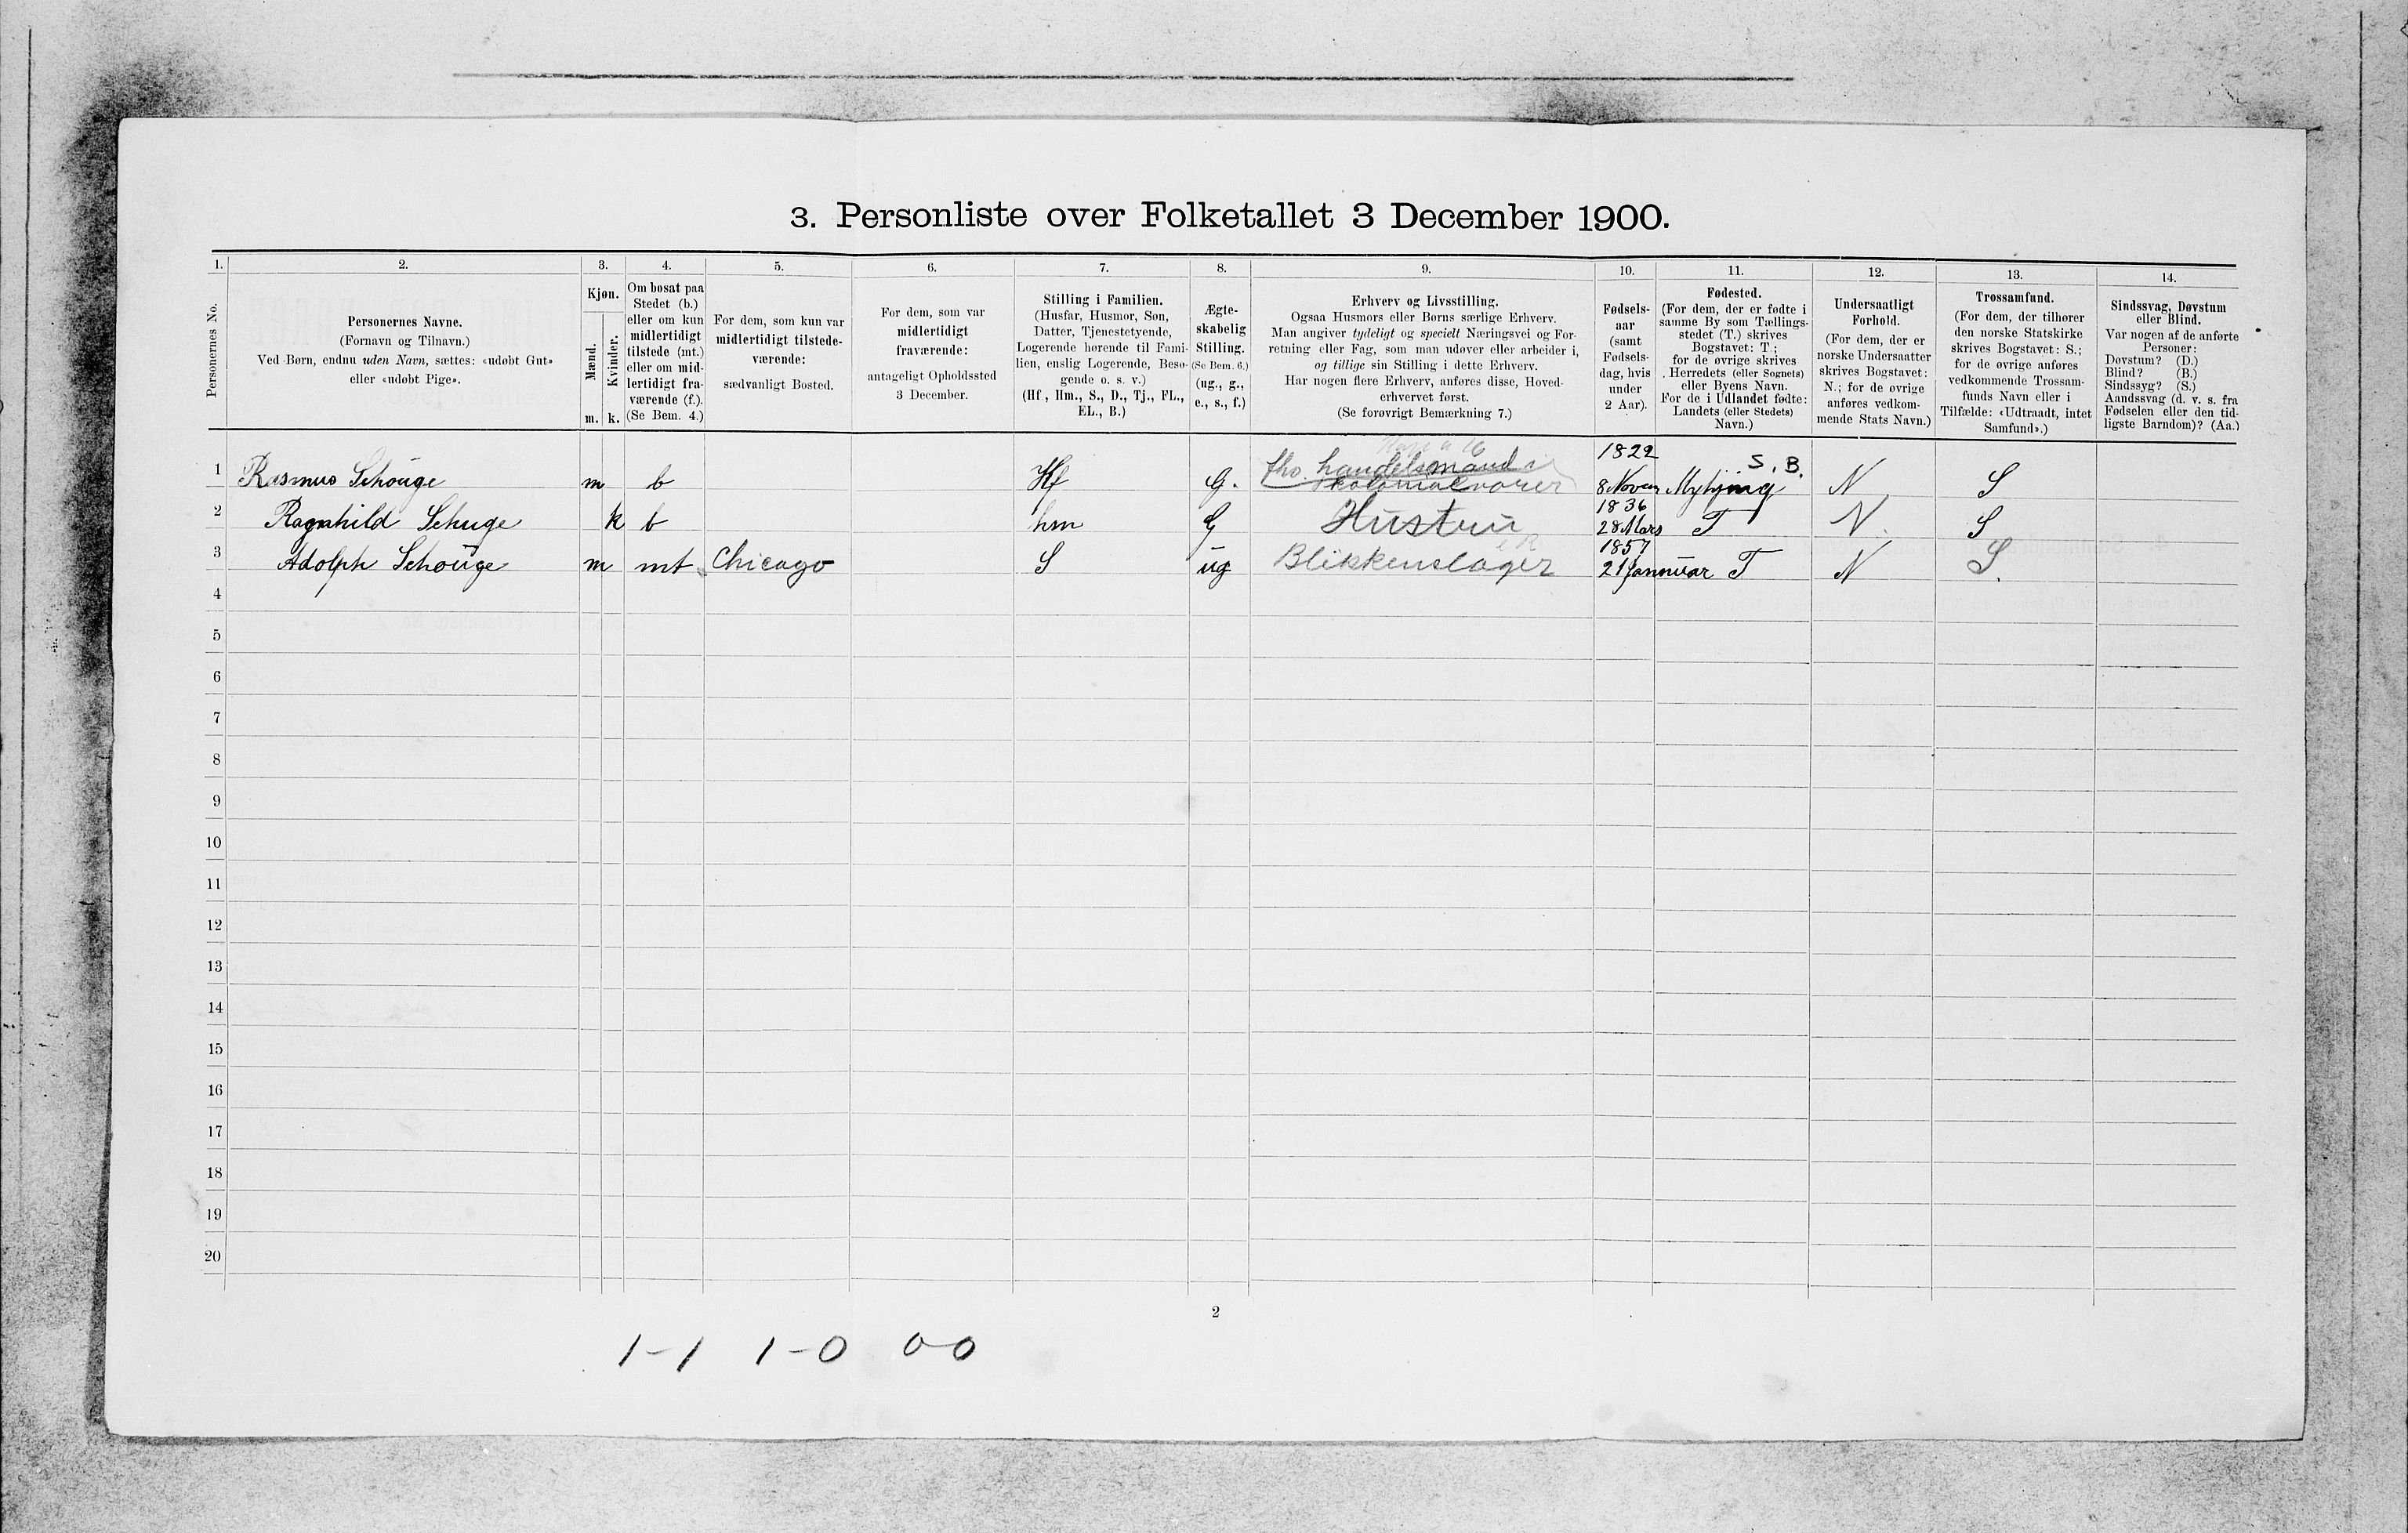 3. Personliste over Folketallet 3 December 1900.
1. 2. 3. 4. 5. 6. 7. 8. 9. 10. 11. 12. 13. 14.
Personernes No.
Personernes Navne.
(Fornavn og Tilnavn.)
Ved Børn, endnu uden Navn, sættes: «udøbt Gut»
eller «udøbt Pige».
Kjøn.
Mænd.
Kvinder.
m. k.
Om bosat paa
Stedet (b.)
eller om kun
midlertidigt
tilstede (mt.)
eller om mid-
lertidigt fra-
værende (f.).
(Se Bem. 4.)
For dem, som kun var
midlertidigt tilstede-
værende:
sædvanligt Bosted.
For dem, som var
midlertidigt
fraværende:
antageligt Opholdssted
3 December.
Stilling i Familien.
(Husfar, Husmor, Søn,
Datter, Tjenestetyende,
Logerende hørende til Fami-
lien, enslig Logerende, Besø-
gende o. s. v.)
(Hf, Hm., S., D., Tj., FL.,
EL., B.)
Ægte-
skabelig
Stilling.
(Se Bem. 6.)
(ug., g.,
e., s., f.)
Erhverv og Livsstilling.
Ogsaa Husmors eller Børns særlige Erhverv.
Man angiver tydeligt og specielt Næringsvei og For-
retning eller Fag, som man udøver eller arbeider i,
og tillige sin Stilling i dette Erhverv.
Har nogen flere Erhverv, anføres disse, Hoved-
erhvervet først.
(Se forøvrigt Bemærkning 7.)
Fødsels-
aar
(samt
Fødsels-
dag, hvis
under
2 Aar).
Fødested.
(For dem, der er fødte i
samme By som Tællings-
stedet (T.) skrives
Bogstavet: T.;
for de øvrige skrives
Herredets (eller Sognets)
eller Byens Navn.
For de i Udlandet fødte:
Landets (eller Stedets)
Navn.)
Undersaatligt
Forhold.
(For dem, der er
norske Undersaatter
skrives Bogstavet:
N.; for de øvrige
anføres vedkom-
mende Stats Navn.)
Trossamfund.
(For dem, der tilhører
den norske Statskirke
skrives Bogstavet: S.;
for de øvrige anføres
vedkommende Trossam-
funds Navn eller i
Tilfælde: «Udtraadt, intet
Samfund».)
Sindssvag, Døvstum
eller Blind.
Var nogen af de anførte
Personer:
Døvstum? (D.)
Blind? (B.)
Sindssyg? (S.)
Aandssvag (d. v. s. fra
Fødselen eller den tid-
ligste Barndom)? (Aa.)
1 Rasmus Schouge m b Hf G. fho. handelsmand i kolonialvarer 1822 8 Novem S. B. N S
2 Ragnhild Schuge k b hm G Hustru 1836 28 Mars T N. S
3 Adolph Schouge m mt Chicago S ug Blikkenslager 1857 21 Januar T N S.
4
5
6
7
8
9
10
11
12
13
14
15
16
17
18
19
20
2
1-1 1-0 0-0